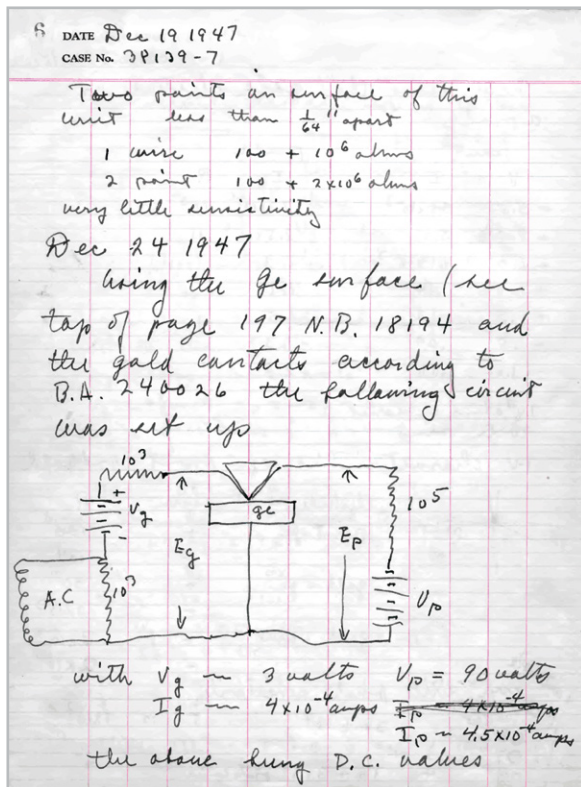 6 DATE Dec 19 1947
CASE No. 38139-7
Two points on surface of this
unit less than 1/64" apart
1 wire 100 + 10⁶ ohms
2 point 100 + 2x10⁶ ohms
very little sensitivity
Dec 24 1947
Using the ge surface (see
top of page 197 N.B. 18194 and
the gold contacts according to
B.A. 240026 the following circuit
was set up
10³
+
Vg
-
Eg
ge
Ep
10⁵
A.C
10³
Vp
with Vg ~ 3 volts Vp = 90 volts
Ig ~ 4x10⁻⁴ amps Ip ~ 4x10⁻⁴ amps
Ip ~ 4.5x10⁻⁴ amps
the above being D.C. values